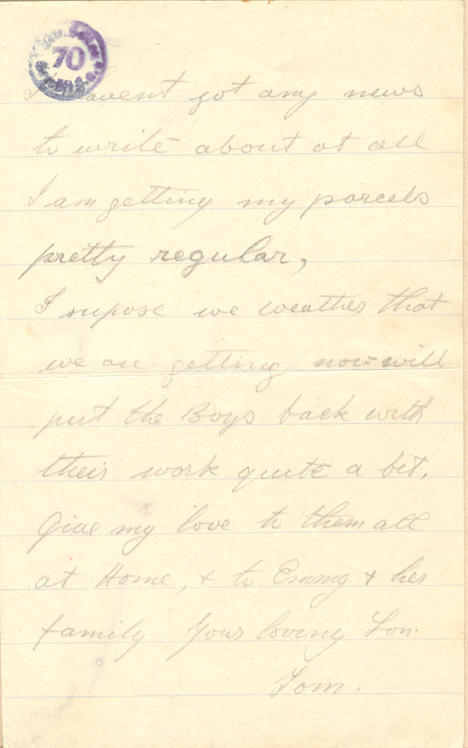 70
I havent got any news
to write about at all
I am getting my parcels
pretty regular,
I supose we weather that
we are getting now will
put the Boys back with
their work quite a bit.
Give my love to them all
at Home, & to Emmy & her
family Your loving Son.
Tom.